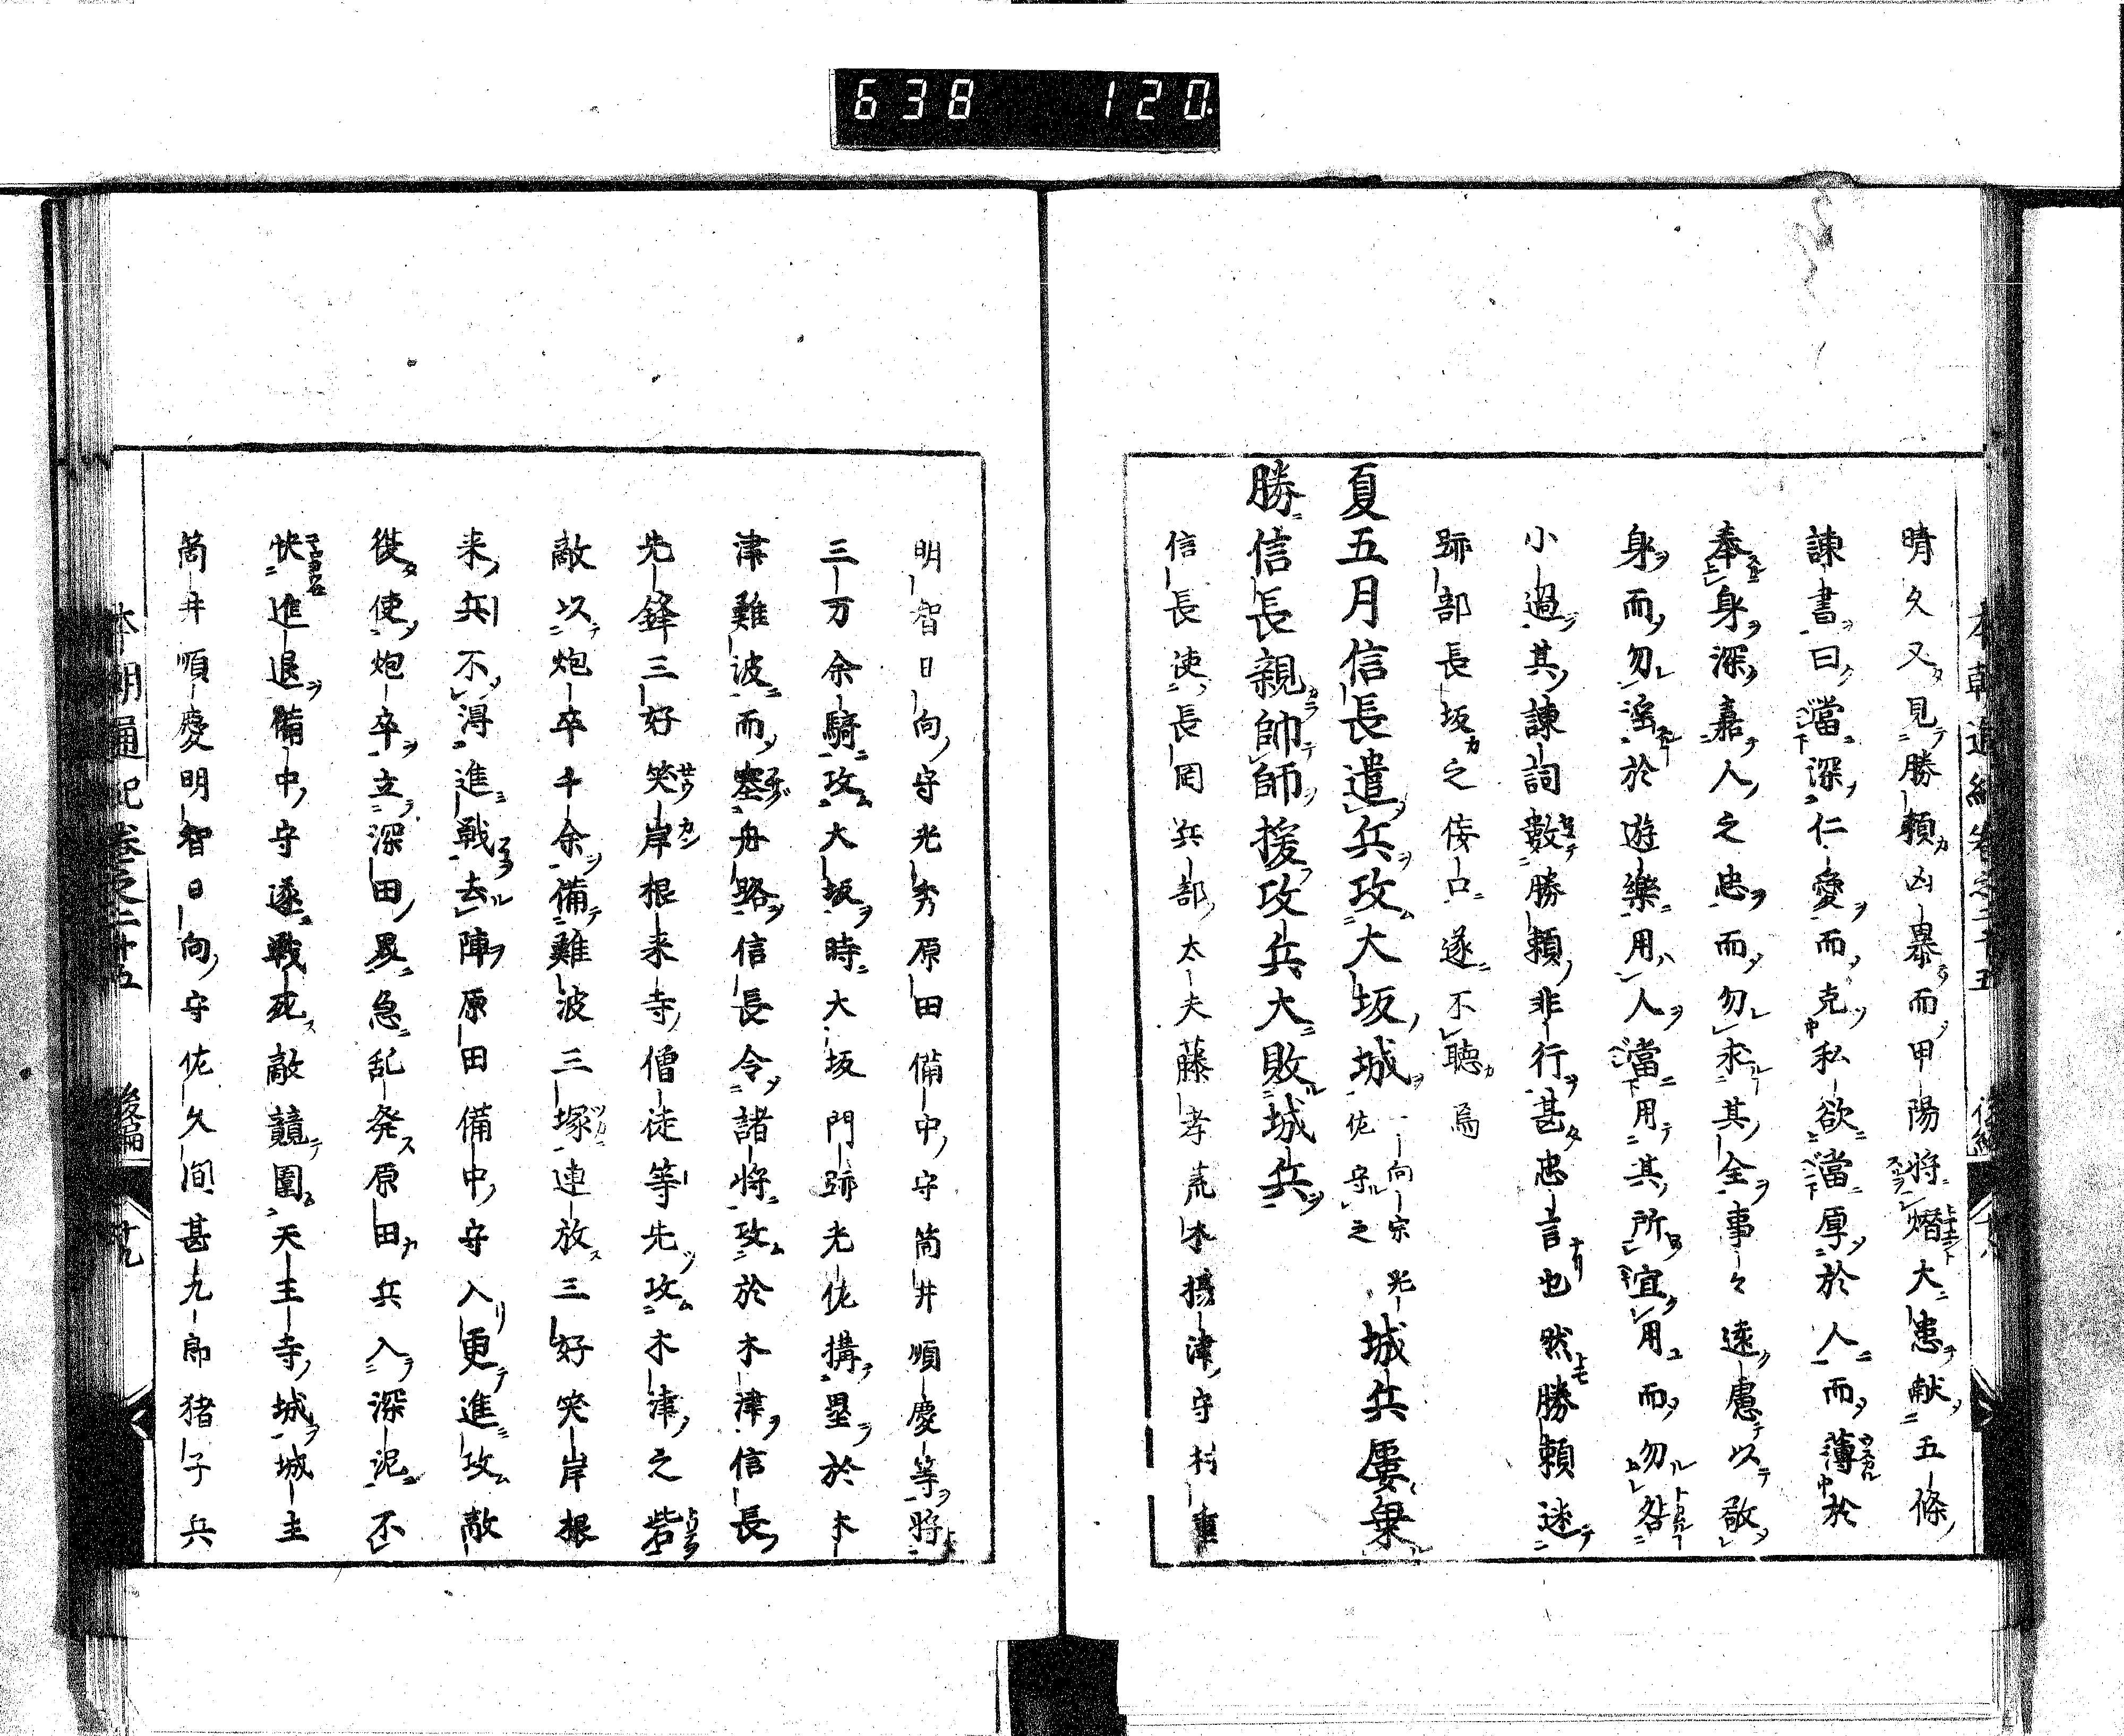 638 120
晴久又見勝頼凶暴而甲陽将熸大患献五條
諫書曰當深仁愛而克私欲當厚於人而薄於
奉身深嘉人之忠而勿求其全事々遠慮以敬
身而勿淫於遊樂用人當用其所宜用而勿咎
小過其諫詞數勝頼非行甚忠言也然勝頼迷
跡部長坂之侫口遂不聴焉
夏五月信長遣兵攻大坂城一向宗光佐守之城兵屢乗
勝信長親帥師援攻兵大敗城兵
信長使長岡兵部太夫藤孝荒木摂津守村重
明智日向守光秀原田備中守筒井順慶等将
三万余騎攻大坂時大坂門跡光佐搆塁於木
津難波而塞舟路信長令諸将攻於木津信長
先鋒三好笑岸根来寺僧徒等先攻木津之砦
敵以炮卒千余備難波三塚連放三好笑岸根
来兵不得進戦去陣原田備中守入更進攻敵
従使炮卒立深田畧急乱発原田兵入深泥不
快進退備中守遂戦死敵競圍天王寺城城主
筒井順慶明智日向守佐久間甚九郎猪子兵
本朝通紀巻之二十五 後編 十八
本朝通紀巻之二十五 後編 十九